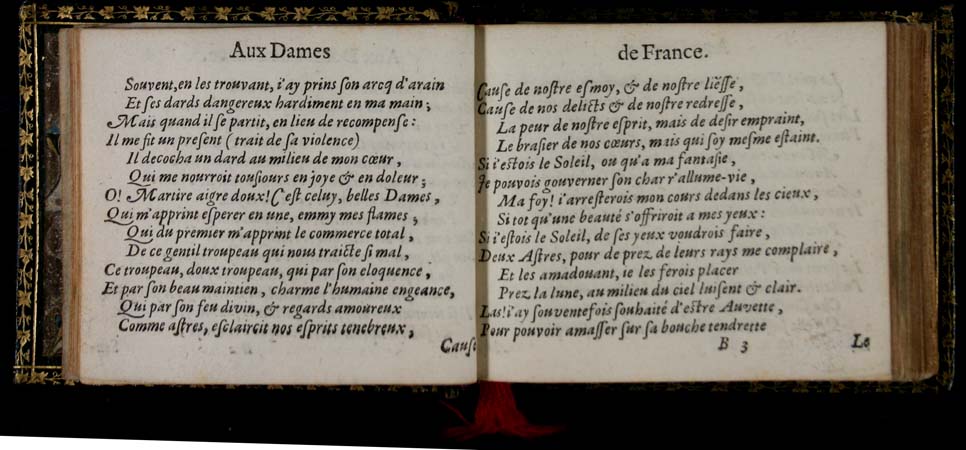 Aux Dames
Souvent, en les trouvant, i'ay prins son arcq d'arain
Et ses dards dangereux hardiment en ma main;
Mais quand il se partit, en lieu de recompense:
Il me fit un present (trait de sa violence)
Il decocha un dard au milieu de mon cœur,
Qui me nourroit tousiours en joye & en doleur;
O! Martire aigre doux! C'est celuy, belles Dames,
Qui m'apprint esperer en une, emmy mes flames;
Qui du premier m'apprint le commerce total,
De ce gentil troupeau qui nous traicte si mal,
Ce troupeau, doux troupeau, qui par son eloquence,
Et par son beau maintien, charme l'humaine engeance,
Qui par son feu divin, & regards amoureux
Comme astres, esclaircit nos esprits tenebreux,
Cause
de France.
Cause de nostre esmoy, & de nostre liësse,
Cause de nos delicts & de nostre redresse,
La peur de nostre esprit, mais de desir empraint,
Le brasier de nos cœurs, mais qui soy mesme estaint.
Si i'estois le Soleil, ou qu'a ma fantasie,
Je pouvois gouverner son char r'allume-vie,
Ma foy! i'arresterois mon cours dedans les cieux,
Si tot qu'une beauté s'offriroit a mes yeux:
Si i'estois le Soleil, de ses yeux voudrois faire,
Deux Astres, pour de prez de leurs rays me complaire,
Et les amadouant, ie les ferois placer
Prez la lune, au milieu du ciel luisent & clair.
Las! i'ay souventefois souhaité d'estre Auvette,
Pour pouvoir amasser sur sa bouche tendrette
B 3
Le